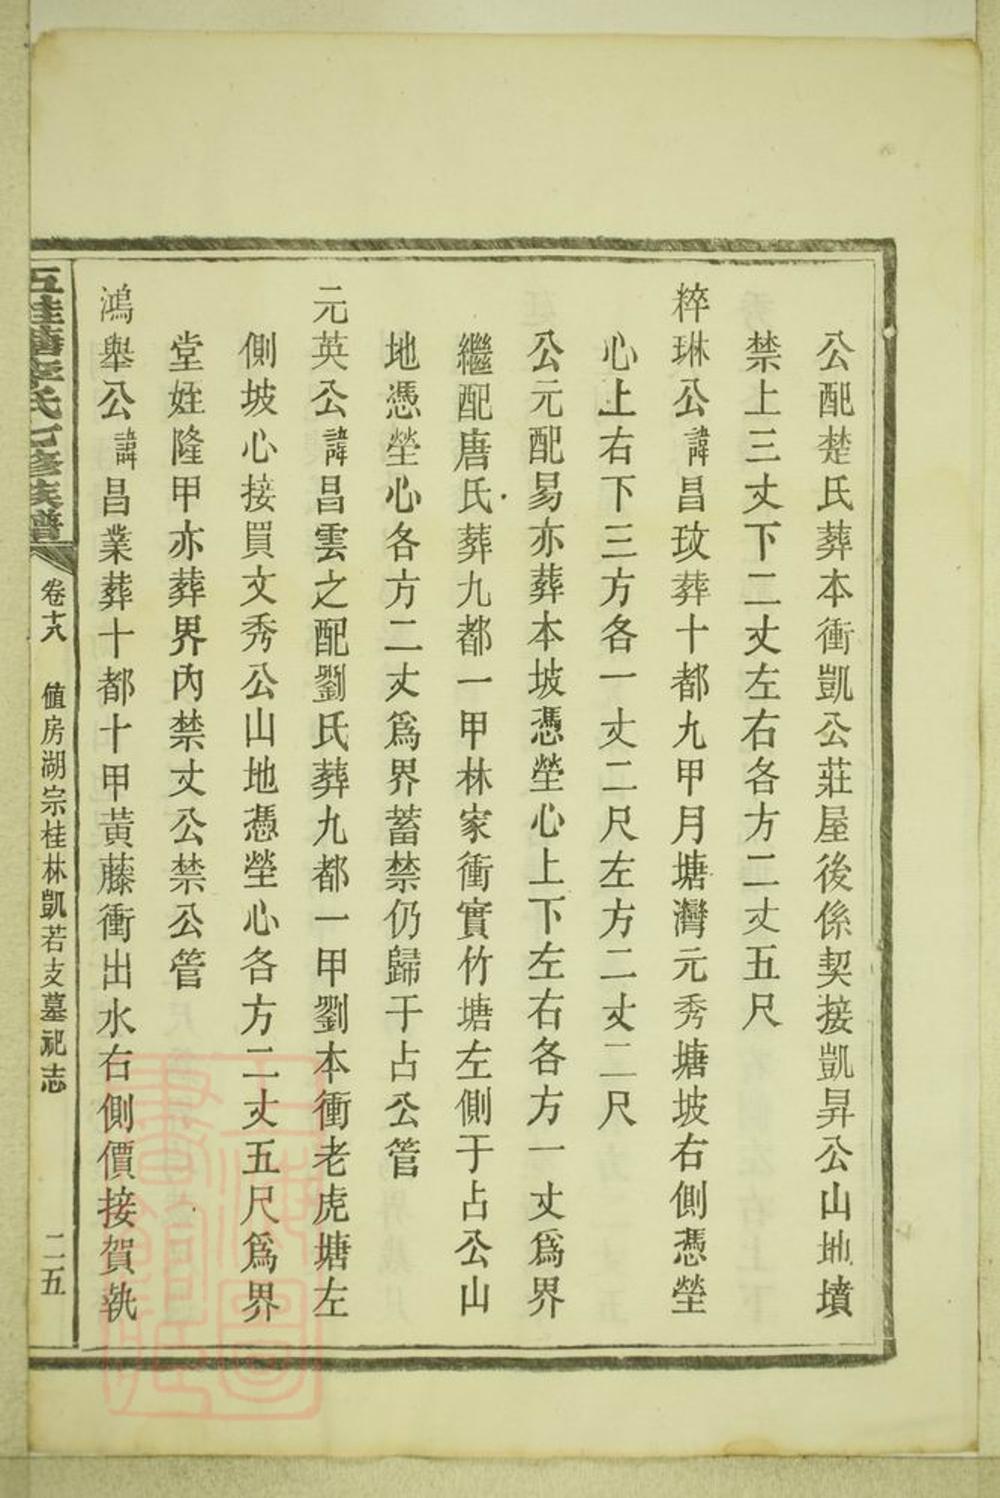 公配楚氏葬本衝凱公莊屋後係契接凱昇公山地墳
禁上三丈下二丈左右各方二丈五尺
粹琳公諱昌玟葬十都九甲月塘灣元秀塘坡右側憑塋
心上右下三方各一丈二尺左方二丈二尺
公元配易亦葬本坡憑塋心上下左右各方一丈爲界
繼配唐氏葬九都一甲林家衝實竹塘左側于占公山
地憑塋心各方二丈爲界蓄禁仍歸于占公管
元英公諱昌雲之配劉氏葬九都一甲劉本衝老虎塘左
側坡心接買文秀公山地憑塋心各方二丈五尺爲界
堂姪隆甲亦葬界內禁丈公禁公管
鴻舉公諱昌業葬十都十甲黃藤衝出水右側價接賀執
五桂塘李氏七修族譜
卷十八
值房湖宗桂林凱若支墓祀志
二五